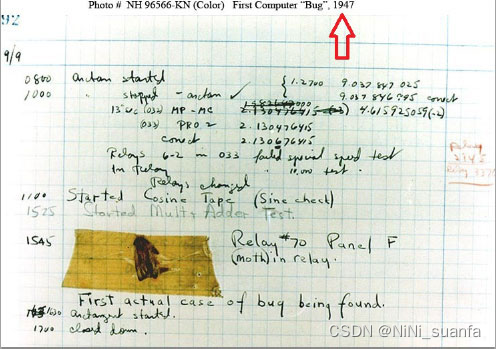 Photo # NH 96566-KN (Color) First Computer "Bug", 1947
92
9/9
0800 antan started
1000 " stopped - antan ✓ { 1.2700 9.037 847 025
9.037 846 995 conect
13"uc (032) MP - MC 2.130476415 4.615925059(-2)
(033) PRO 2 2.130476415
conect 2.130676415
Relays 6-2 in 033 failed special speed test
In Relay " 10,000 test.
Relay
2145
Relay 3370
Relays changed
1100 Started Cosine Tape (Sine check)
1525 Started Mult+Adder Test.
1545 Relay #70 Panel F
(moth) in relay.
First actual case of bug being found.
1630 antangent started.
1700 closed down.
CSDN @NiNi_suanfa